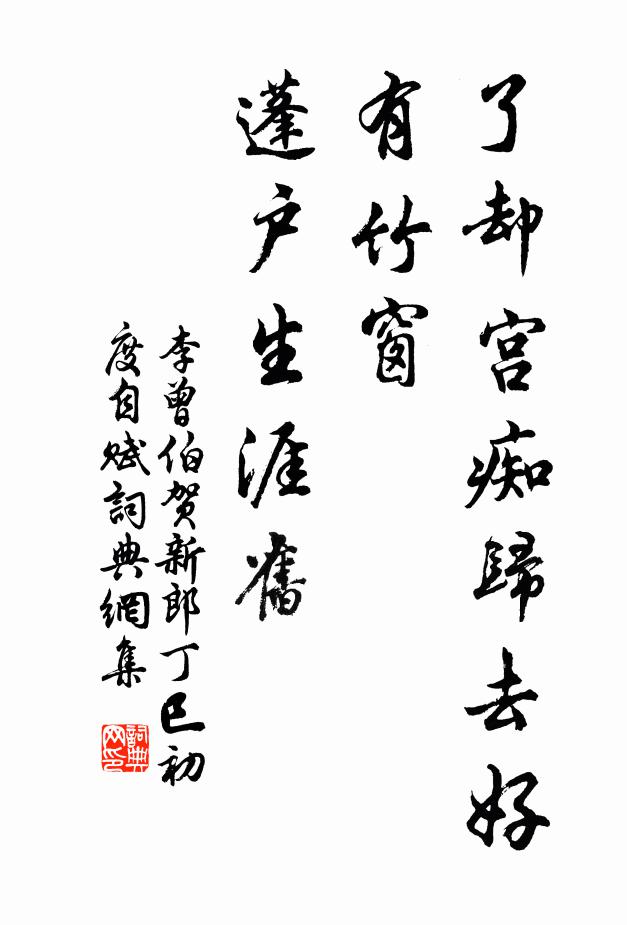 了却宫痴歸去好
有竹窗
蓬户生涯舊
李曾伯贺新郎丁巳初
度自赋詞典網集
詞典
网印